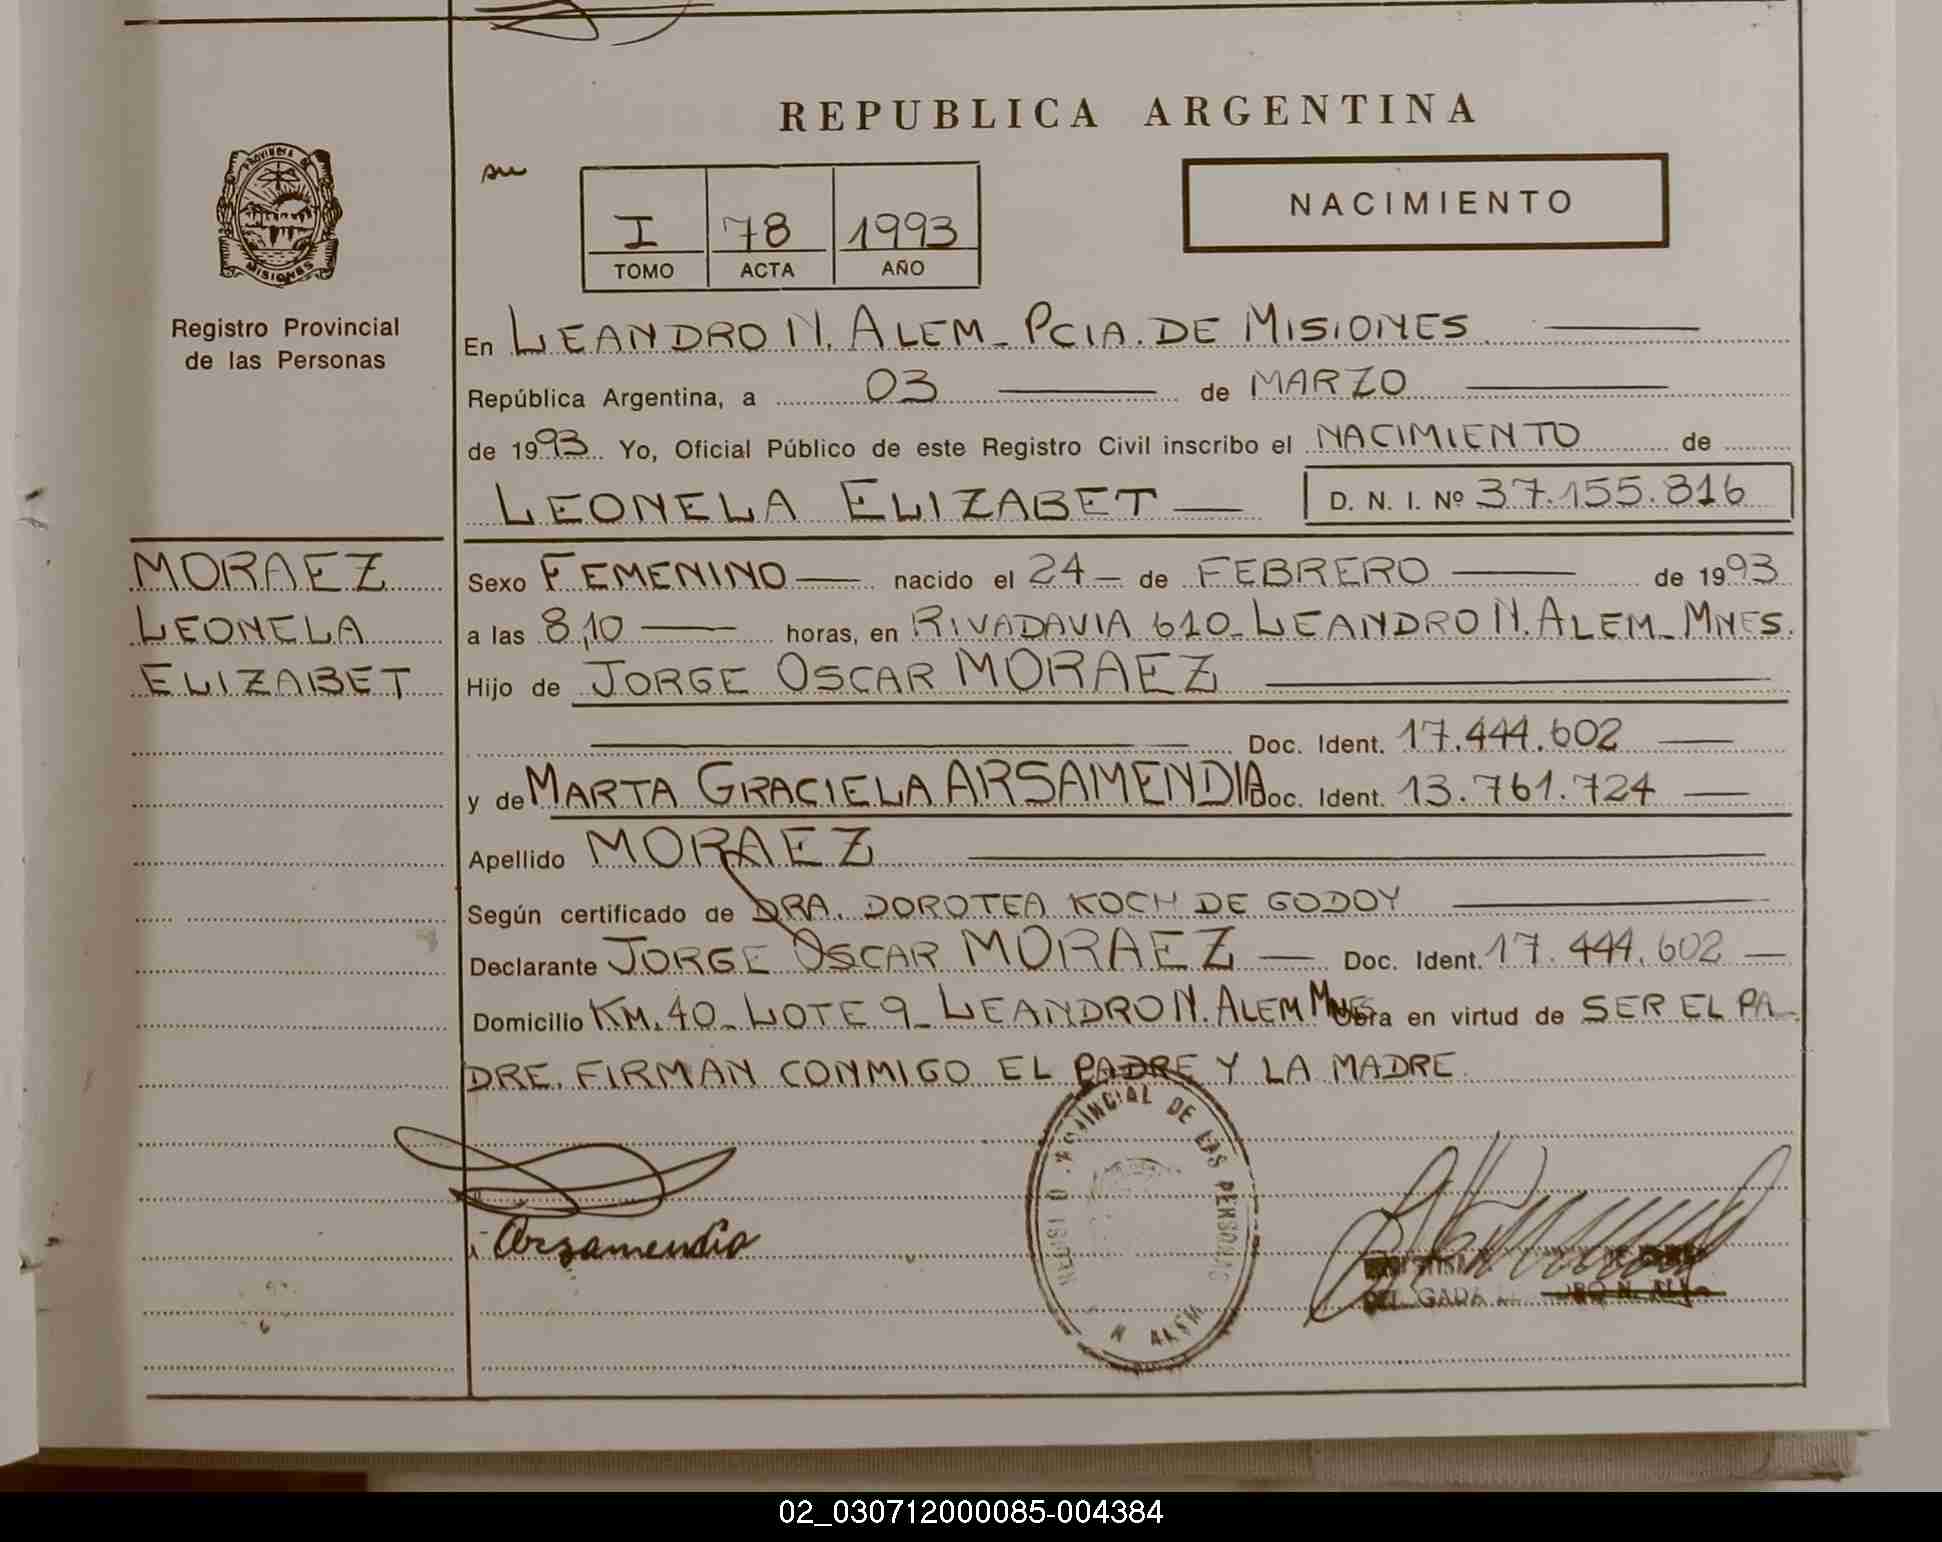 REPUBLICA ARGENTINA
PROVINCIA DE
MISIONES
Registro Provincial
de las Personas
I 78 1993
TOMO ACTA AÑO
NACIMIENTO
En LEANDRO N. ALEM_ PCIA. DE MISIONES
República Argentina, a 03 de MARZO
de 1993 Yo, Oficial Público de este Registro Civil inscribo el NACIMIENTO de
LEONELA ELIZABET — D. N. I. Nº 37.155.816
MORAEZ
LEONELA
ELIZABET
Sexo FEMENINO — nacido el 24 — de FEBRERO — de 1993
a las 8,10 — horas, en RIVADAVIA 610_ LEANDRO N. ALEM_ MNES.
Hijo de JORGE OSCAR MORAEZ
Doc. Ident. 17.444.602 —
y de MARTA GRACIELA ARSAMENDIA Doc. Ident. 13.761.724 —
Apellido MORAEZ
Según certificado de DRA. DOROTEA KOCH DE GODOY
Declarante JORGE OSCAR MORAEZ — Doc. Ident. 17.444.602 —
Domicilio KM. 40_ LOTE 9_ LEANDRO N. ALEM MNES Obra en virtud de SER EL PA-
DRE. FIRMAN CONMIGO EL PADRE Y LA MADRE
Arzamendia
DE LAS PERSONAS
N ALEM
02_030712000085-004384